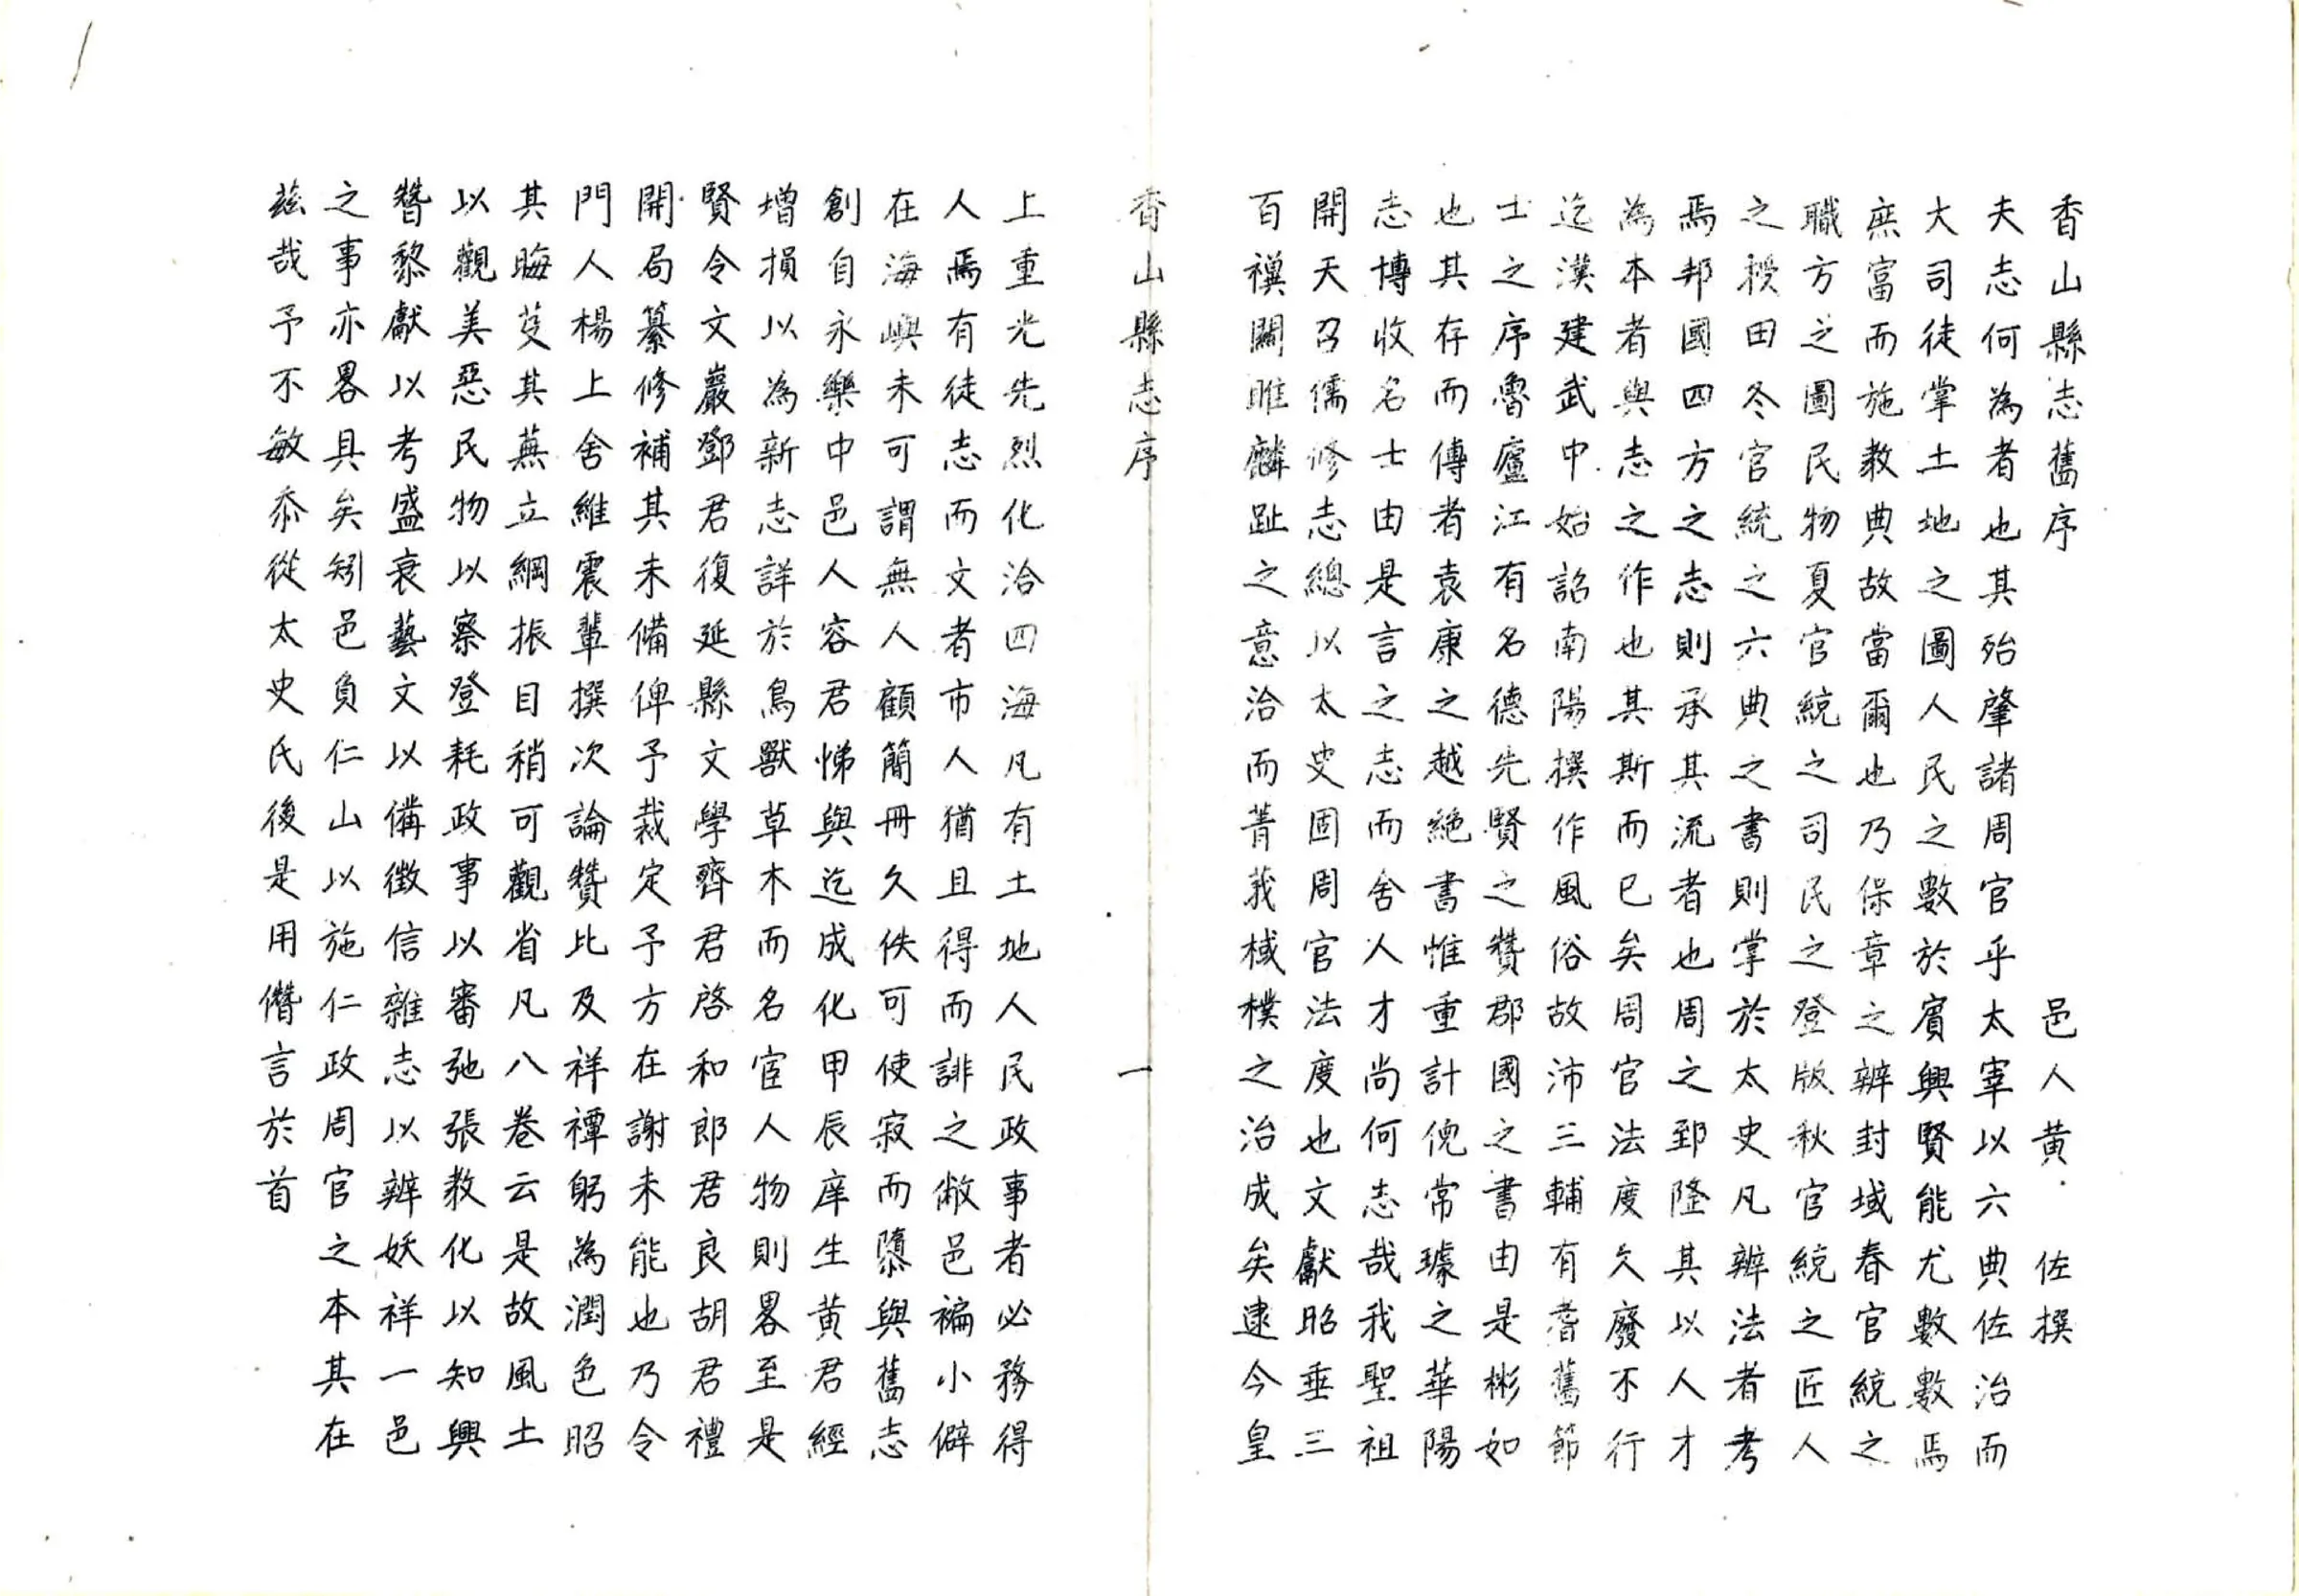 香山縣志舊序 邑人黄 佐撰
夫志何為者也其殆肇諸周官乎太宰以六典佐治而
大司徒掌土地之圖人民之數於賓興賢能尤數數焉
庶富而施教典故當爾也乃保章之辨封域春官統之
職方之圖民物夏官統之司民之登版秋官統之匠人
之授田冬官統之六典之書則掌於太史凡辨法者考
焉邦國四方之志則承其流者也周之郅隆其以人才
為本者與志之作也其斯而已矣周官法度久廢不行
迄漢建武中始詔南陽撰作風俗故沛三輔有耆舊節
士之序魯廬江有名德先賢之贊郡國之書由是彬如
也其存而傳者袁康之越絶書惟重計倪常璩之華陽
志博收名士由是言之志而舍人才尚何志哉我聖祖
開天召儒修志總以太史固周官法度也文獻昭垂三
百禩關雎麟趾之意洽而菁莪棫樸之治成矣逮今皇
香山縣志序 一
上重光先烈化洽四海凡有土地人民政事者必務得
人焉有徒志而文者市人猶且得而誹之敝邑褊小僻
在海嶼未可謂無人顧簡冊久佚可使寂而隳與舊志
創自永樂中邑人容君悌與迄成化甲辰庠生黄君經
增損以為新志詳於鳥獸草木而名宦人物則畧至是
賢令文巖鄧君復延縣文學齊君啓和郎君良胡君禮
開局纂修補其未備俾予裁定予方在謝未能也乃令
門人楊上舍維震輩撰次論贊比及祥禫躬為潤色昭
其晦芟其蕪立綱振目稍可觀省凡八卷云是故風土
以觀美惡民物以察登耗政事以審弛張教化以知興
贊黎獻以考盛衰藝文以備徵信雜志以辨妖祥一邑
之事亦畧具矣矧邑負仁山以施仁政周官之本其在
茲哉予不敏忝從太史氏後是用僭言於首